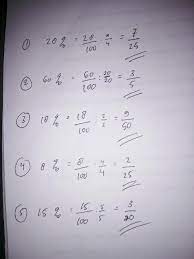 ① 20 % = 20/100 : 4/4 = 7/25
② 60 % = 60/100 : 20/20 = 3/5
③ 18 % = 18/100 : 2/2 = 9/50
④ 8 % = 8/100 : 4/4 = 2/25
⑤ 15 % = 15/100 : 5/5 = 3/20